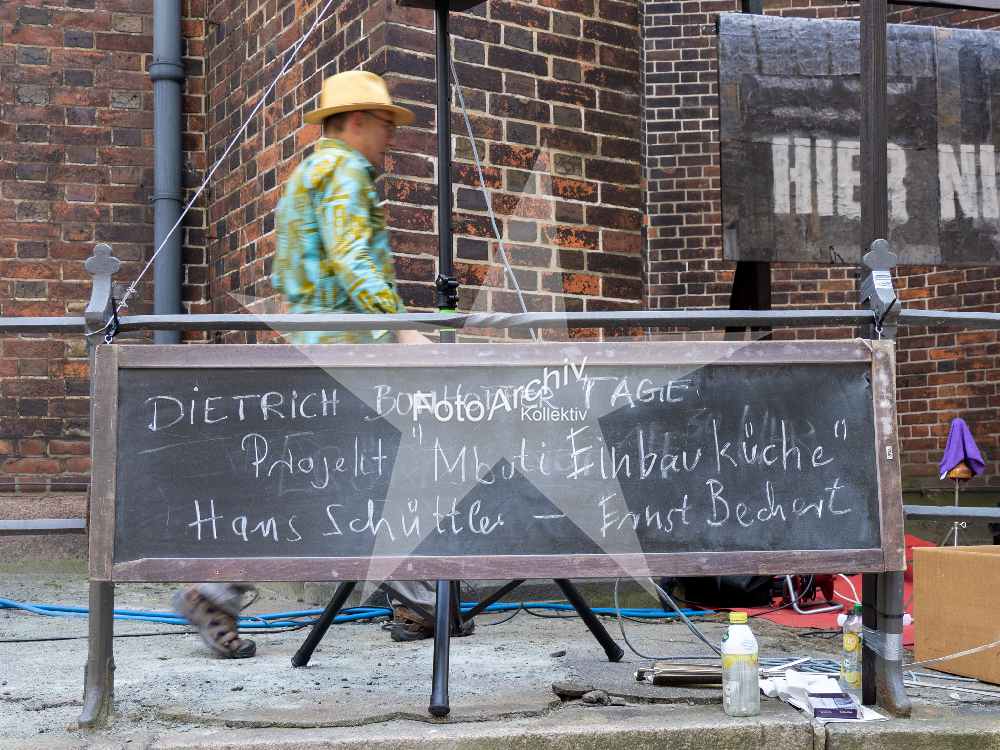 HIER
DIETRICH BONHOEFFER TAGE:
Projekt "Mbuti Einbauküche"
Hans Schüttler — Ernst Bechert
FotoArchiv
Kollektiv